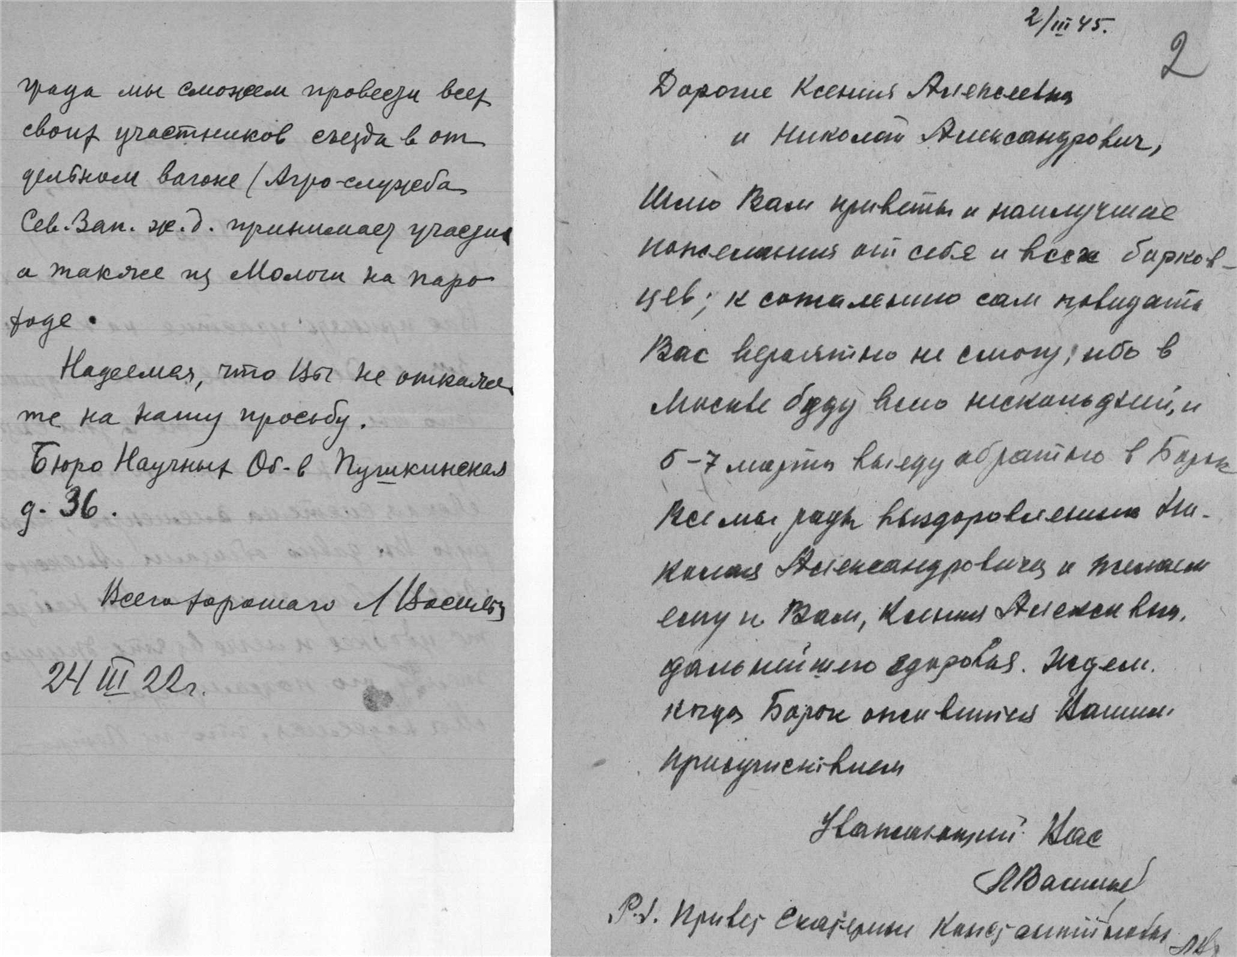 града мы сможем провезти всех
своих участников съезда в от
дельном вагоне (Агро-служба
Сев. Зап. ж. д. принимает участие
а также из Мологи на паро
ходе.
Надеемся, что Вы не откаже
те на нашу просьбу.
Бюро Научных Об-в Пушкинская
д. 36.
Всего хорошаго Л Васильев
24 III 22 г.
2/III 45.
2
Дорогие Ксения Алексеевна
и Николай Александрович,
Шлю Вам приветы и наилучшие
пожелания от себя и всех борков-
цев; к сожалению сам повидать
Вас вероятно не смогу, ибо в
Москве буду всего несколько дней, и
6-7 марта выеду обратно в Борок
Все мы рады выздоровлению Ни-
колая Александровича и желаем
ему и Вам, Ксения Алексеевна,
дальнейшего здоровья. Ждем.
когда Борок оживится Вашим
присутствием
Уважающий Вас
ЛВасильев
P.S. Привет Екатерине Константиновне